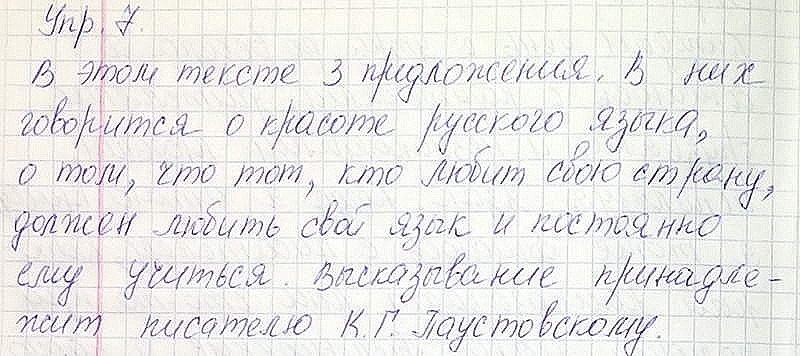 Упр. 7.
В этом тексте 3 придложения. В них
говорится о красоте русского языка,
о том, что тот, кто любит свою страну,
должен любить свой язык и постоянно
ему учиться. Высказывание принадле-
жит писателю К.Г. Паустовскому.